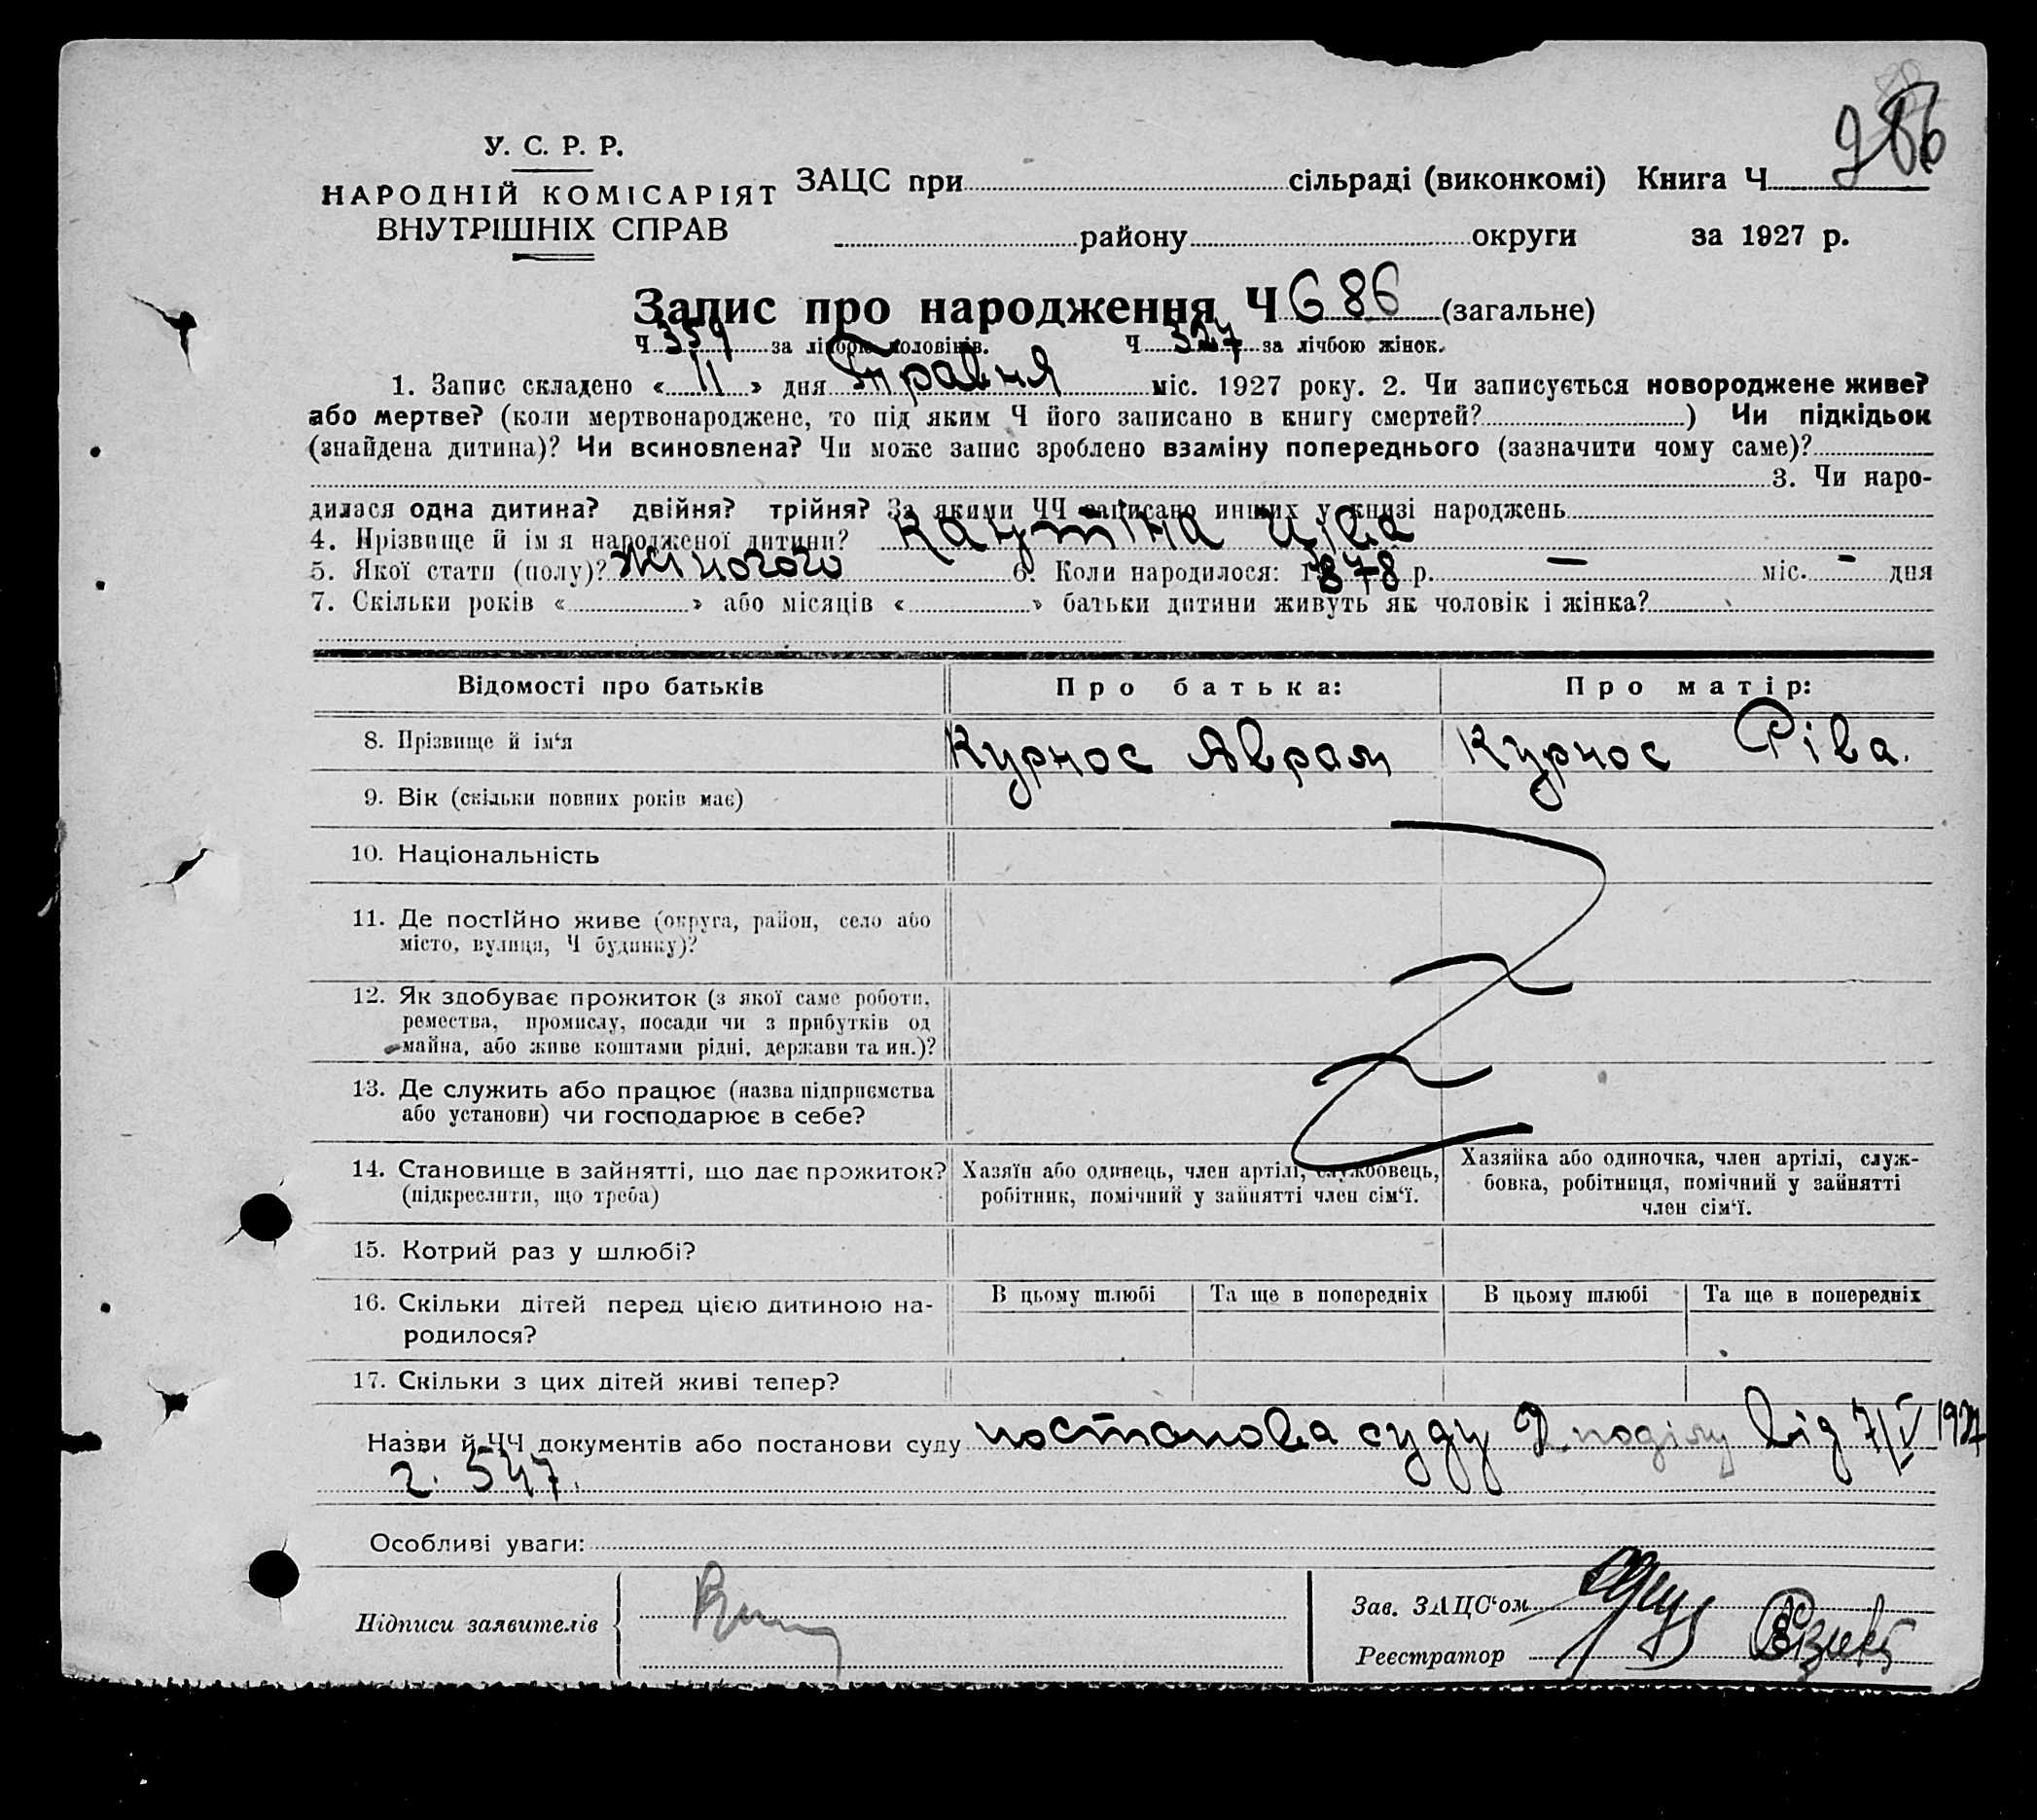 У. С. Р. Р.
НАРОДНІЙ КОМІСАРІЯТ
ВНУТРІШНІХ СПРАВ
ЗАЦС при сільраді (виконкомі) Книга Ч
району округи за 1927 р.
Запис про народження Ч 686 (загальне)
Ч 359 за лічбою чоловінів. Ч 327 за лічбою жінок.
1. Запис складено « 11 » дня Травня міс. 1927 року. 2. Чи записується новороджене живе?
або мертве? (коли мертвонароджене, то під яким Ч його записано в книгу смертей? ) Чи підкідьок
(знайдена дитина)? Чи всиновлена? Чи може запис зроблено взаміну попереднього (зазначити чому саме)?
3. Чи наро-
дилася одна дитина? двійня? трійня? За якими ЧЧ записано инших у книзі народжень
4. Прізвище й імя народженої дитини?
5. Якої стати (полу)? жіночого 6. Коли народилося: 1878 р. — міс. - дня
7. Скільки років « » або місяців « » батьки дитини живуть як чоловік і жінка?
Відомості про батьків Про батька: Про матір:
8. Прізвище й ім‘я Курнос Аврам Курнос Ріва.
9. Вік (скільки повних років має)
10. Національність
11. Де постійно живе (округа, район, село або
місто, вулиця, Ч будинку)?
12. Як здобуває прожиток (з якої саме роботи,
ремества, промислу, посади чи з прибутків од
майна, або живе коштами рідні, держави та ин.)?
13. Де служить або працює (назва підприємства
або установи) чи господарює в себе?
14. Становище в зайнятті, що дає прожиток?
(підкреслити, що треба)
Хазяїн або одинець, член артілі, службовець,
робітник, помічний у зайнятті член сім‘ї.
Хазяйка або одиночка, член артілі, служ-
бовка, робітниця, помічний у зайнятті
член сім‘ї.
15. Котрий раз у шлюбі?
16. Скільки дітей перед цією дитиною на-
родилося?
В цьому шлюбі Та ще в попередніх В цьому шлюбі Та ще в попередніх
17. Скільки з цих дітей живі тепер?
Назви й ЧЧ документів або постанови суду постанова суду 2 поділу від 7/V 1927
г. 547.
Особливі уваги:
Підписи заявителів
Зав. ЗАЦС‘ом
Реєстратор